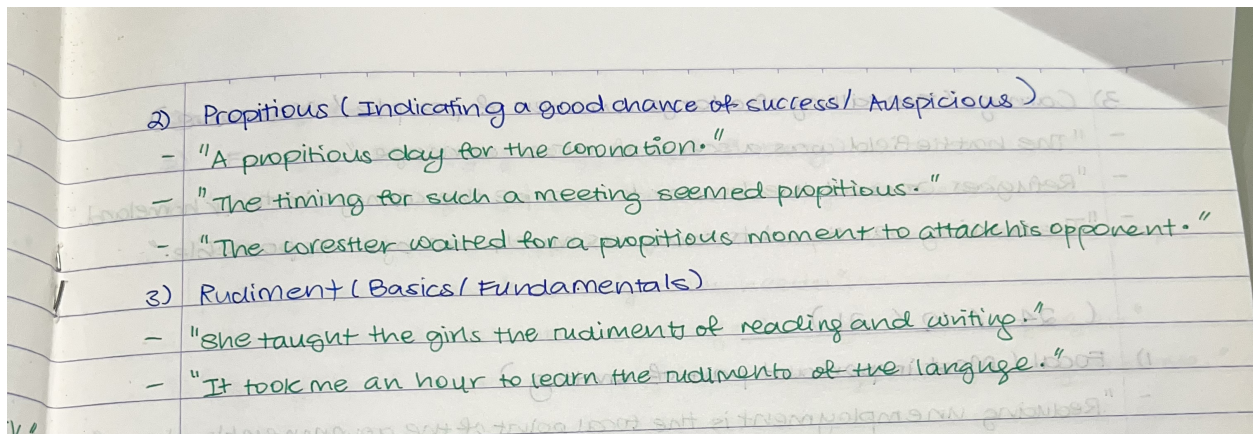 2) Propitious (Indicating a good chance of success/ Auspicious)
- "A propitious day for the coronation."
- "The timing for such a meeting seemed propitious."
- "The corestler waited for a propitious moment to attack his opponent."
3) Rudiment (Basics/ Fundamentals)
- "She taught the girls the rudiments of reading and writing."
- "It took me an hour to learn the rudiments of the languge."